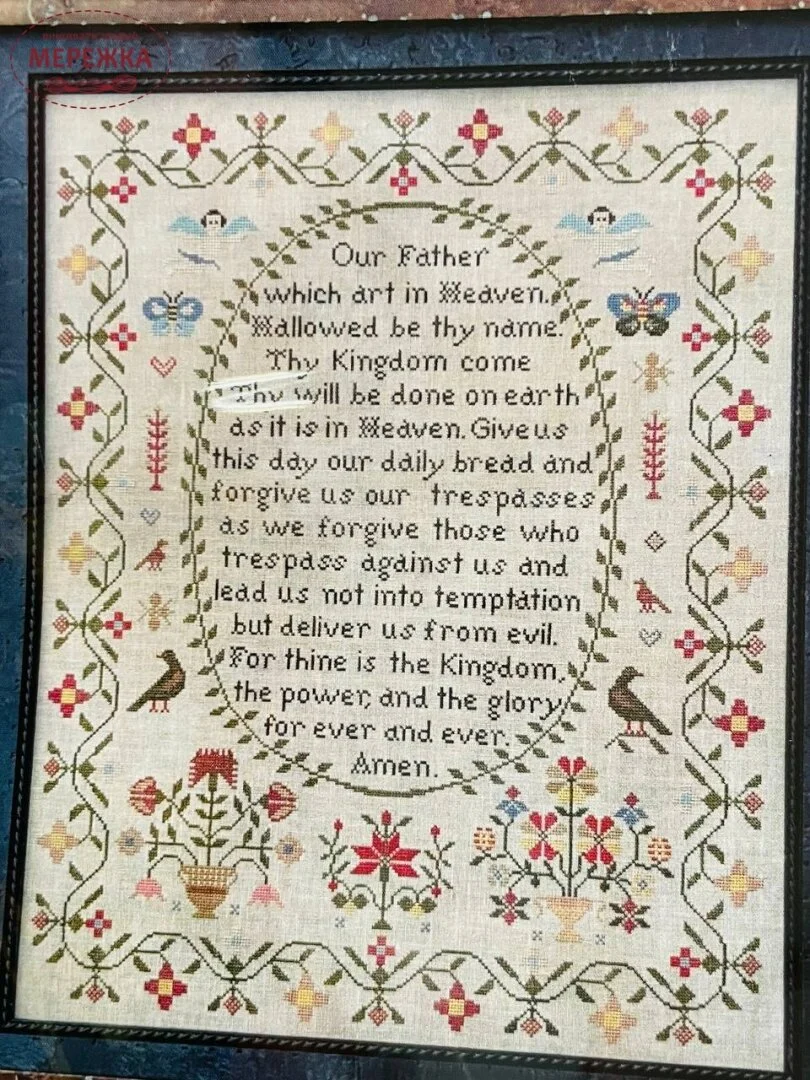 МЕРЕЖКА
Our Father
which art in Heaven.
Hallowed be thy name.
Thy Kingdom come
Thy will be done on earth
as it is in Heaven. Give us
this day our daily bread and
forgive us our trespasses
as we forgive those who
trespass against us and
lead us not into temptation
but deliver us from evil.
For thine is the Kingdom,
the power, and the glory
for ever and ever.
Amen.